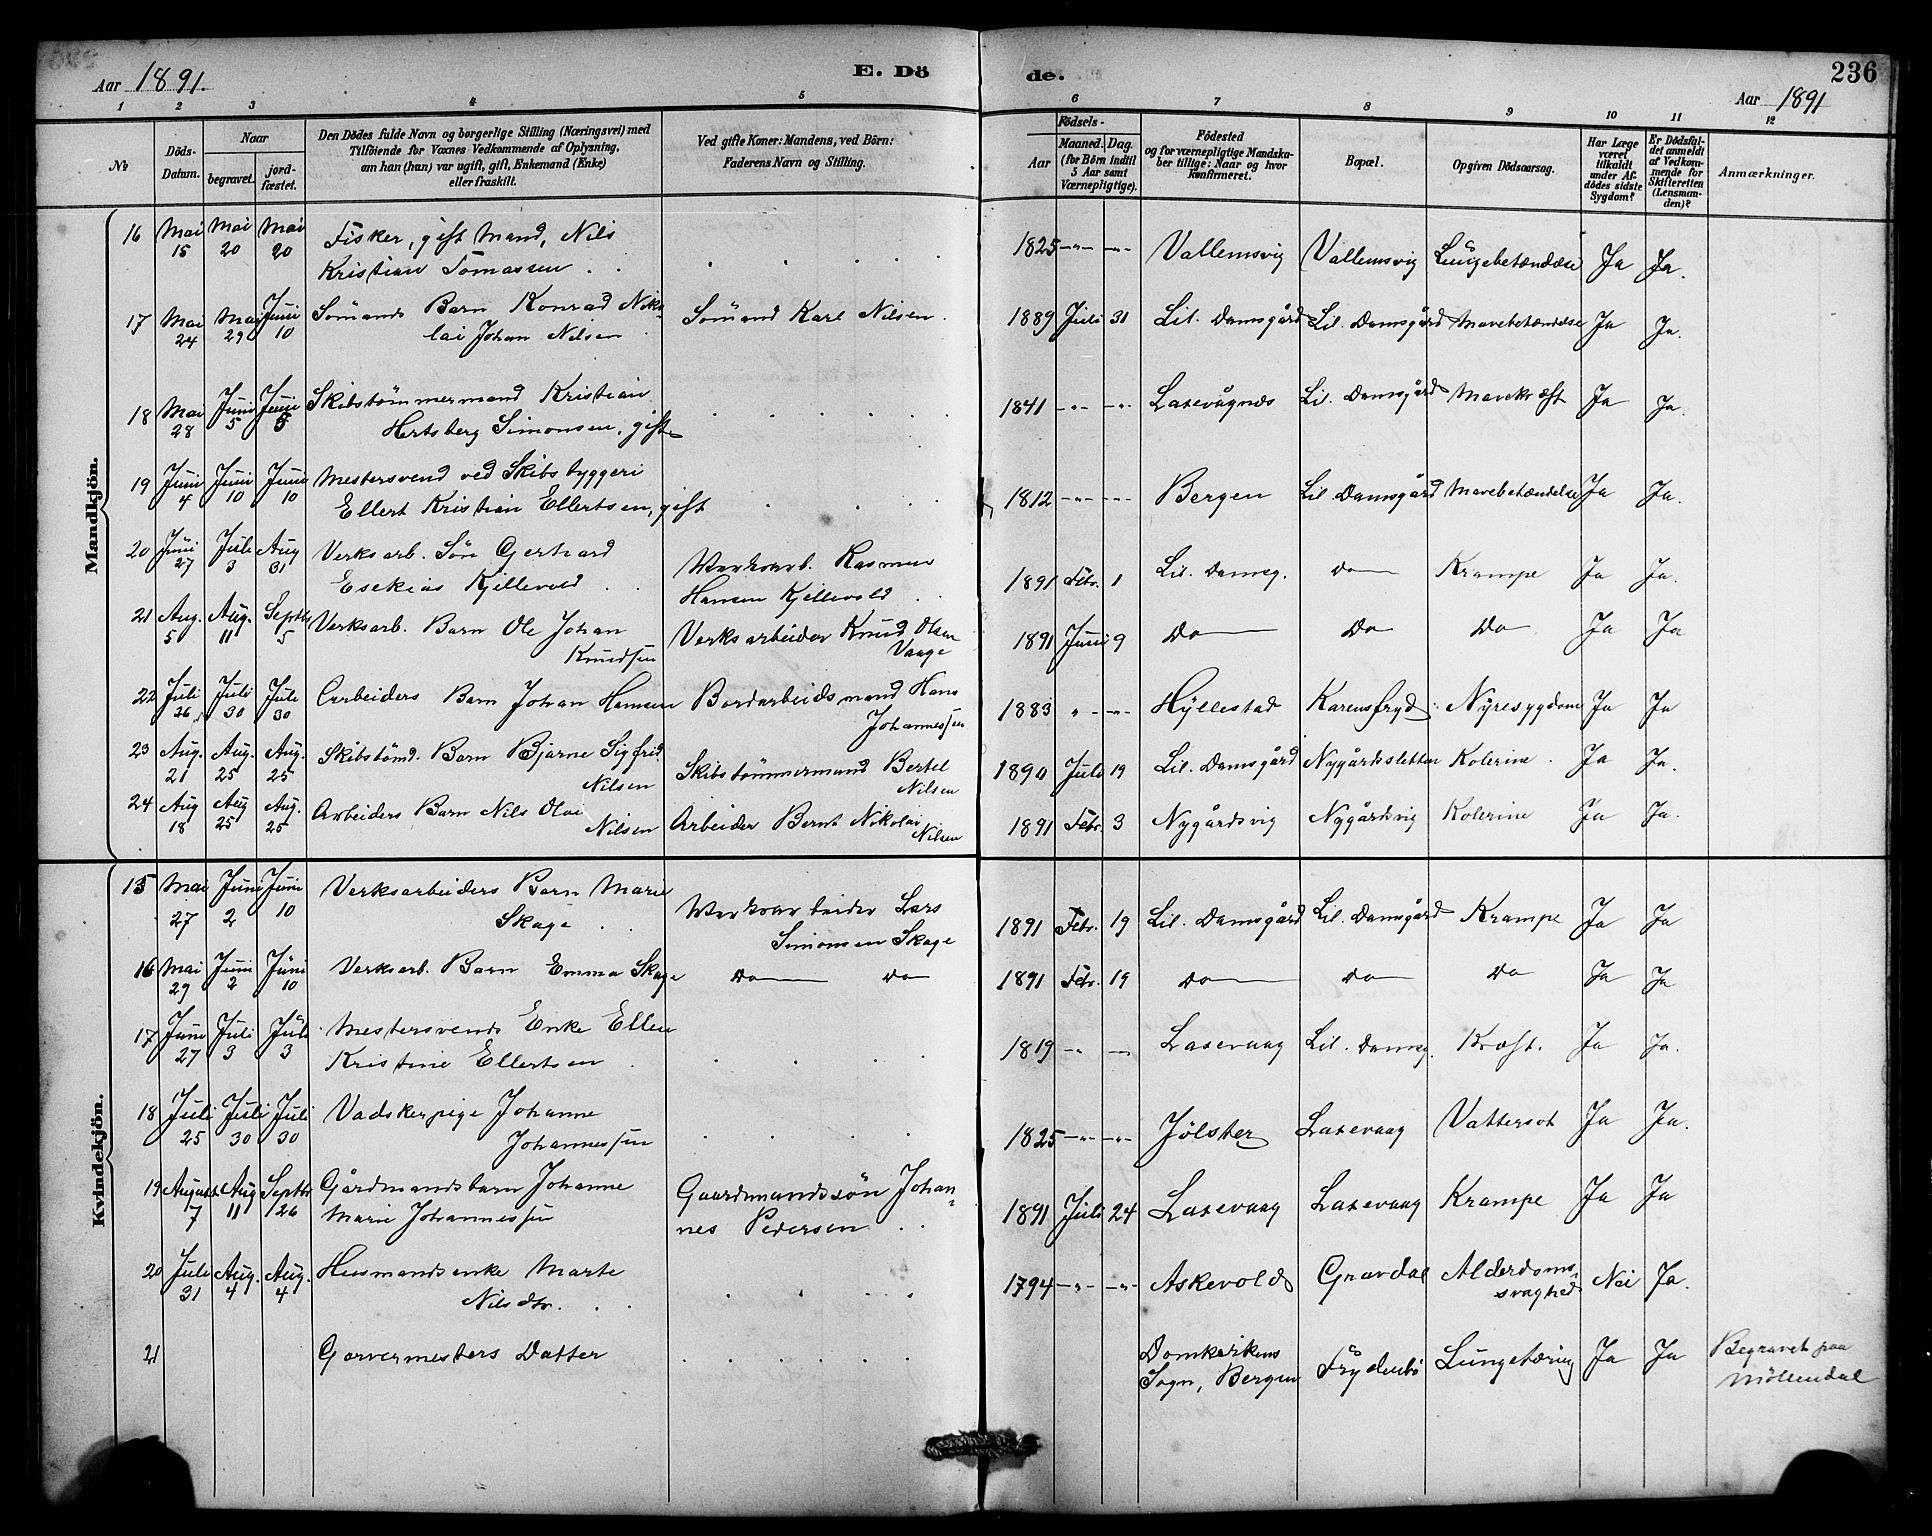 Aar 1891.
E. Dö
de.
236
Aar 1891
1 2 3 4 5 6 7 8 9 10 11 12
No
Döds-Datum.
Naar
begravet.
jord-fæstet.
Den Dödes fulde Navn og borgerlige Stilling (Næringsvei) med
Tilföiende for Voxnes Vedkommende af Oplysning,
om han (hun) var ugift, gift, Enkemand (Enke)
eller fraskilt.
Ved gifte Koner: Mandens, ved Börn:
Faderens Navn og Stilling.
Födsels-
Aar
Maaned. Dag.
(for Börn indtil
5 Aar samt
Værnepligtige).
Födested
og for værnepligtige Mandska-
ber tillige: Naar og hvor
konfirmeret.
Bopæl.
Opgiven Dödsaarsag.
Har Læge
været
tilkaldt
under Af-
dödes sidste
Sygdom?
Er Dödsfal-
det anmeldt
af Vedkom-
mende for
Skifteretten
(Lensman-
den)?
Anmærkninger.
Mandkjön.
16 Mai 15 Mai 20 Mai 20 Fisker, gift Mand, Nils
Kristian Tomassen 1825 Vallemsvig Vallemsvig Lungebetændelse Ja Ja.
17 Mai 24 Mai 29 Juni 10 Sømands Barn Konrad Niko-
lai Johan Nilsen Sømand Karl Nilsen. 1889 Juli 31 Lil. Damsgård Lil. Damsgård Mavebetændelse Ja Ja.
18 Mai 28 Juni 5 Juni 5 Skibstømmermand Kristian
Hertsberg Simonsen, gift 1841 Laxevågnes Lil. Damsgård Mavekræft Ja Ja.
19 Juni 4 Juni 10 Juni 10 Mestersvend ved Skibsbyggeri
Ellert Kristian Ellertsen, gift 1812 Bergen Lil. Damsgård Mavebetændelse Ja Ja.
20 Juni 27 Juli 3 Aug 31 Verksarb. Søn Gerhard
Esekias Kjillevold Værksarb. Rasmus
Hansen Kjillevold 1891 Febr. 1 Lil. Damsg. Do Krampe Ja Ja.
21 Aug. 5 Aug. 11 Septbr 5 Verksarb. Barn Ole Johan
Knudsen Verksarbeider Knud Olsen
Vaage 1891 Juni 9 Do Do Do Ja Ja
22 Juli 26 Juli 30 Juli 30 Arbeiders Barn Johan Hansen Bordarbeidsmand Hans
Johannessen 1883 Hyllestad Karensfryd Nyresygdom Ja Ja
23 Aug. 21 Aug. 25 Aug. 25 Skibstømd. Barn Bjarne Sigfrid
Nilsen Skibstømmermand Bertel
Nilsen 1890 Juli 19 Lil. Damsgård Nygårdsletten Kolerine Ja Ja.
24 Aug 18 Aug 25 Aug. 25 Arbeiders Barn Nils Olai
Nilsen Arbeider Bernt Nikolai
Nilsen 1891 Febr. 3 Nygårdsvig Nygårdsvig Kolerine Ja Ja.
Kvindekjön.
15 Mai 27 Juni 2 Juni 10 Verksarbeiders Barn Marie
Skage Værksarbeider Lars
Simonsen Skage 1891 Febr. 19 Lil. Damsgård Lil. Damsgård Krampe Ja Ja
16 Mai 29 Juni 2 Juni 10 Verksarb. Barn Emma Skage Do Do 1891 Febr. 19 Do Do Do Ja Ja
17 Juni 27 Juli 3 Juli 3 Mestersvends Enke Ellen
Kristine Ellertsen 1819 Laxevaag Lil. Damsg. Kræft. Ja Ja.
18 Juli 25 Juli 30 Juli 30 Vadskerpige Johanne
Johannessen 1825 Jölster Laxevaag Vattersot Ja Ja.
19 August 7 Aug 11 Septbr 26 Gårdmandsbarn Johanne
Marie Johannessen Gaardmandssön Johan-
nes Pedersen 1891 Juli 24 Laxevaag Laxevaag Krampe Ja Ja
20 Juli 31 Aug. 4 Aug. 4 Husmandsenke Marte
Nilsdtr. 1794 Askevold Gravdal Alderdoms-
svaghed Nei Ja.
21 Garvermesters Datter Domkirkens
Sogn, Bergen Frydenbö Lungetæring Ja Ja Begravet paa
Möllendal